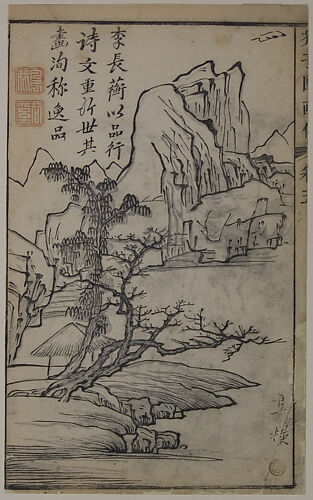 李長蘅以品行
詩文重於世其
畫洵称逸品
芥子園畫傳